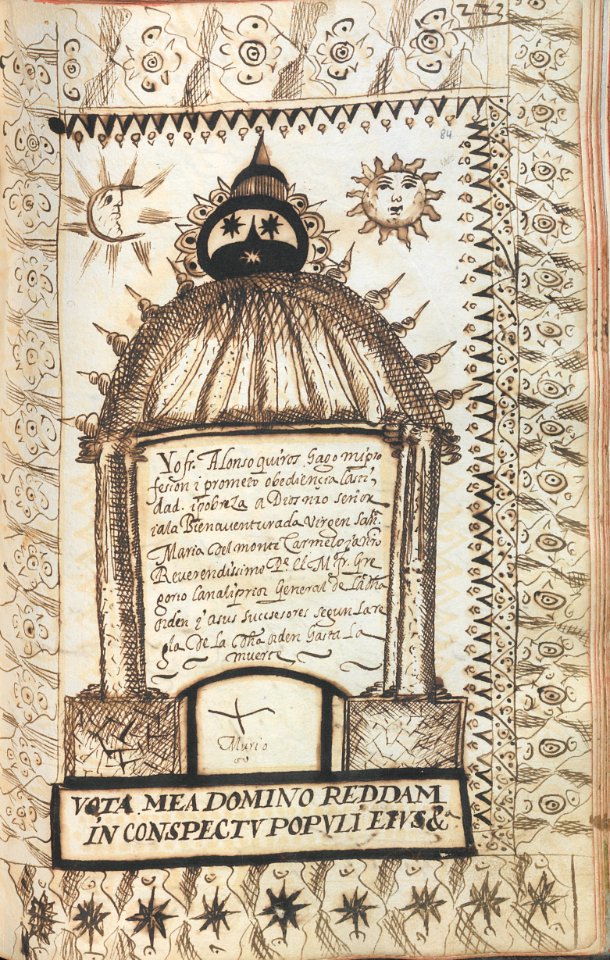 223
84
Yo fr. Alonso quiros Hago mi pro
fesion i prometo obediencia Casti
dad. i pobreza a Dios nro señor
i a la Bienaventurada Virgen San.
Maria del monte Carmelo j a nro
Reverendissimo Pe. el M.º fr. Gre
gorio Canali prior General de la dha
orden y a sus Successores segun la re
gla De la dha orden Hasta La
muerte
Murio
VOTA MEA DOMINO REDDAM
IN CONSPECTV POPVLI EIVS &a